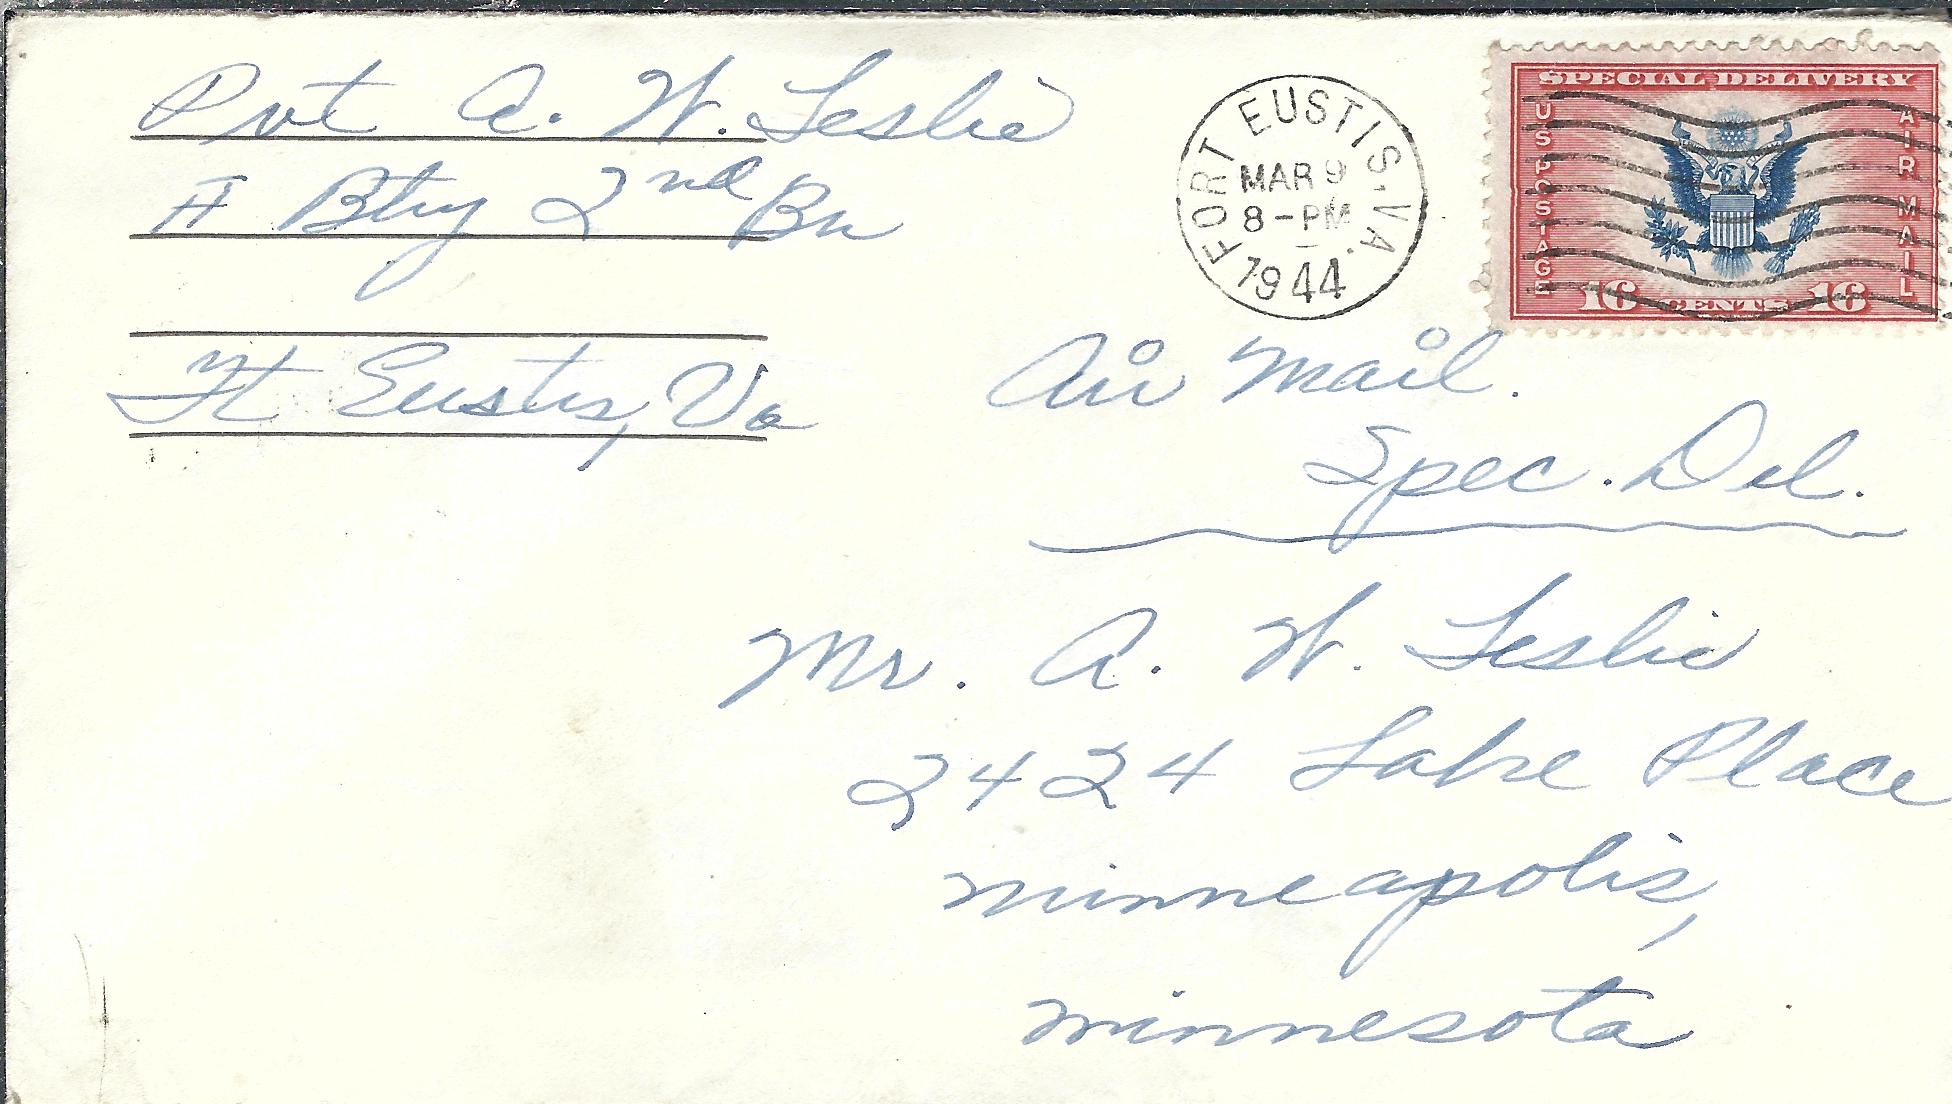 Pvt A. W. Leslie
Btry 2nd Bn
Ft Eustis, Va
FORT EUSTIS, VA.
MAR 9
8-PM
1944
SPECIAL DELIVERY
U.S. POSTAGE
AIR MAIL
16 CENTS 16
Air Mail.
Spec. Del.
Mr. A. W. Leslie
2424 Lake Place
Minneapolis,
Minnesota